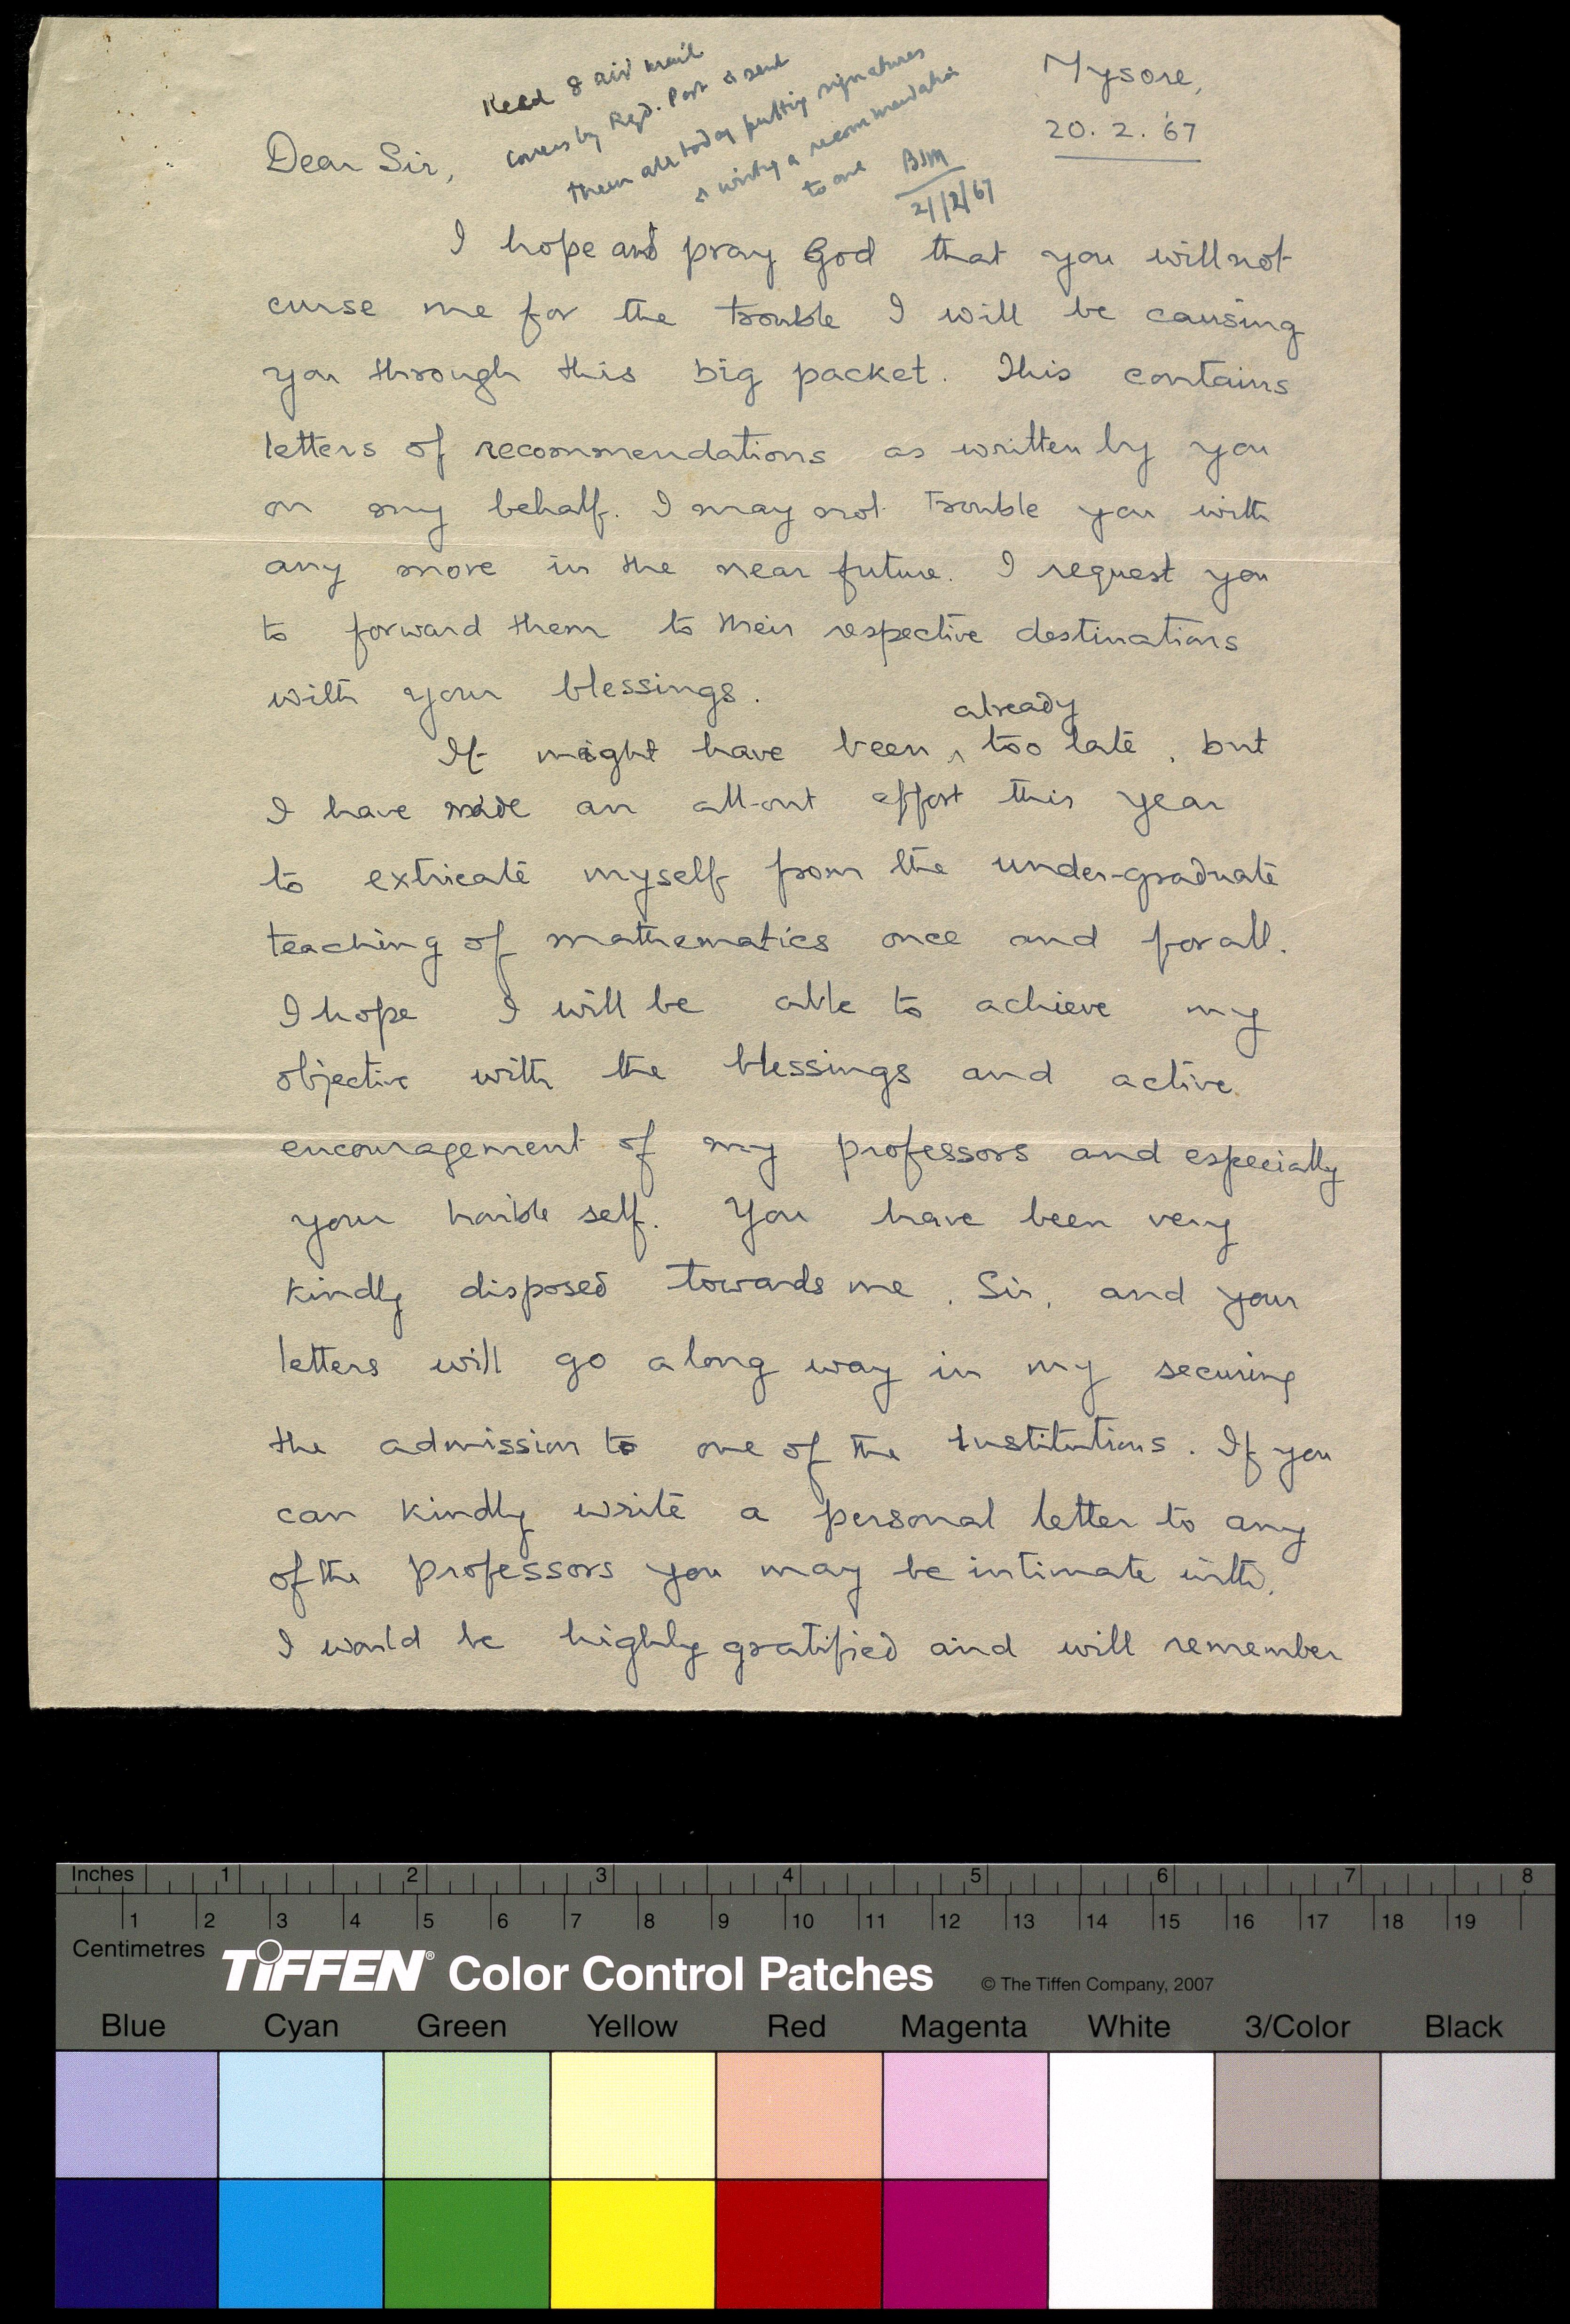 Mysore,
20. 2. '67
Recd 8 air mail
covers by Regd. Post & sent
them all today putting signatures
& writing a recommendation
to one BSM
21/2/67
Dear Sir,
I hope and pray God that you will not
curse me for the trouble I will be causing
you through this big packet. This contains
letters of recommendations as written by you
on my behalf. I may not trouble you with
any more in the near future. I request you
to forward them to their respective destinations
with your blessings.
It might have been already too late, but
I have made an all-out effort this year
to extricate myself from the under-graduate
teaching of mathematics once and for all.
I hope I will be able to achieve my
objective with the blessings and active
encouragement of my professors and especially
your honble self. You have been very
kindly disposed towards me, Sir, and your
letters will go a long way in my securing
the admission to one of the Institutions. If you
can kindly write a personal letter to any
of the professors you may be intimate with,
I would be highly gratified and will remember
Inches 1 2 3 4 5 6 7 8
1 2 3 4 5 6 7 8 9 10 11 12 13 14 15 16 17 18 19
Centimetres
TIFFEN® Color Control Patches © The Tiffen Company, 2007
Blue Cyan Green Yellow Red Magenta White 3/Color Black